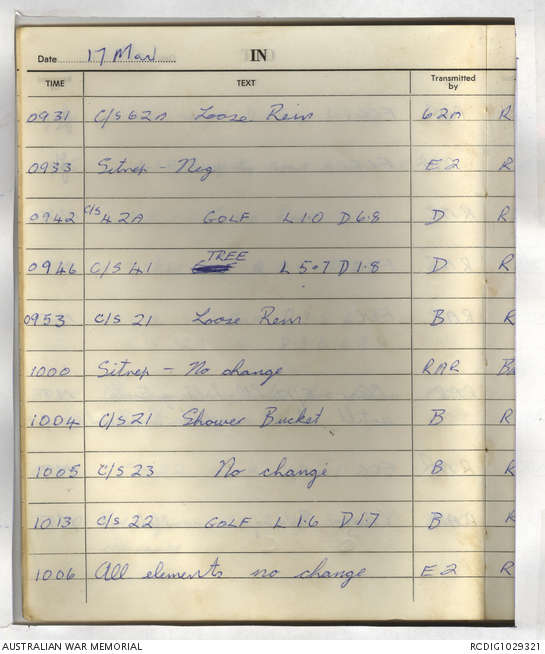 Date 17 Mar IN
TIME TEXT Transmitted by
0931 C/S 62A Loose Rein 62A R
0933 Sitrep - Neg E2 R
0942 C/S 42A GOLF L 1.0 D 6.8 D R
0946 C/S 41 TREE L 5.7 D 1.8 D R
0953 C/S 21 Loose Rein B R
1000 Sitrep - No change RAR
1004 C/S 21 Shower Bucket B R
1005 C/S 23 No change B R
1013 C/S 22 GOLF L 1.6 D 1.7 B R
1006 All elements no change E2 R
AUSTRALIAN WAR MEMORIAL RCDIG1029321